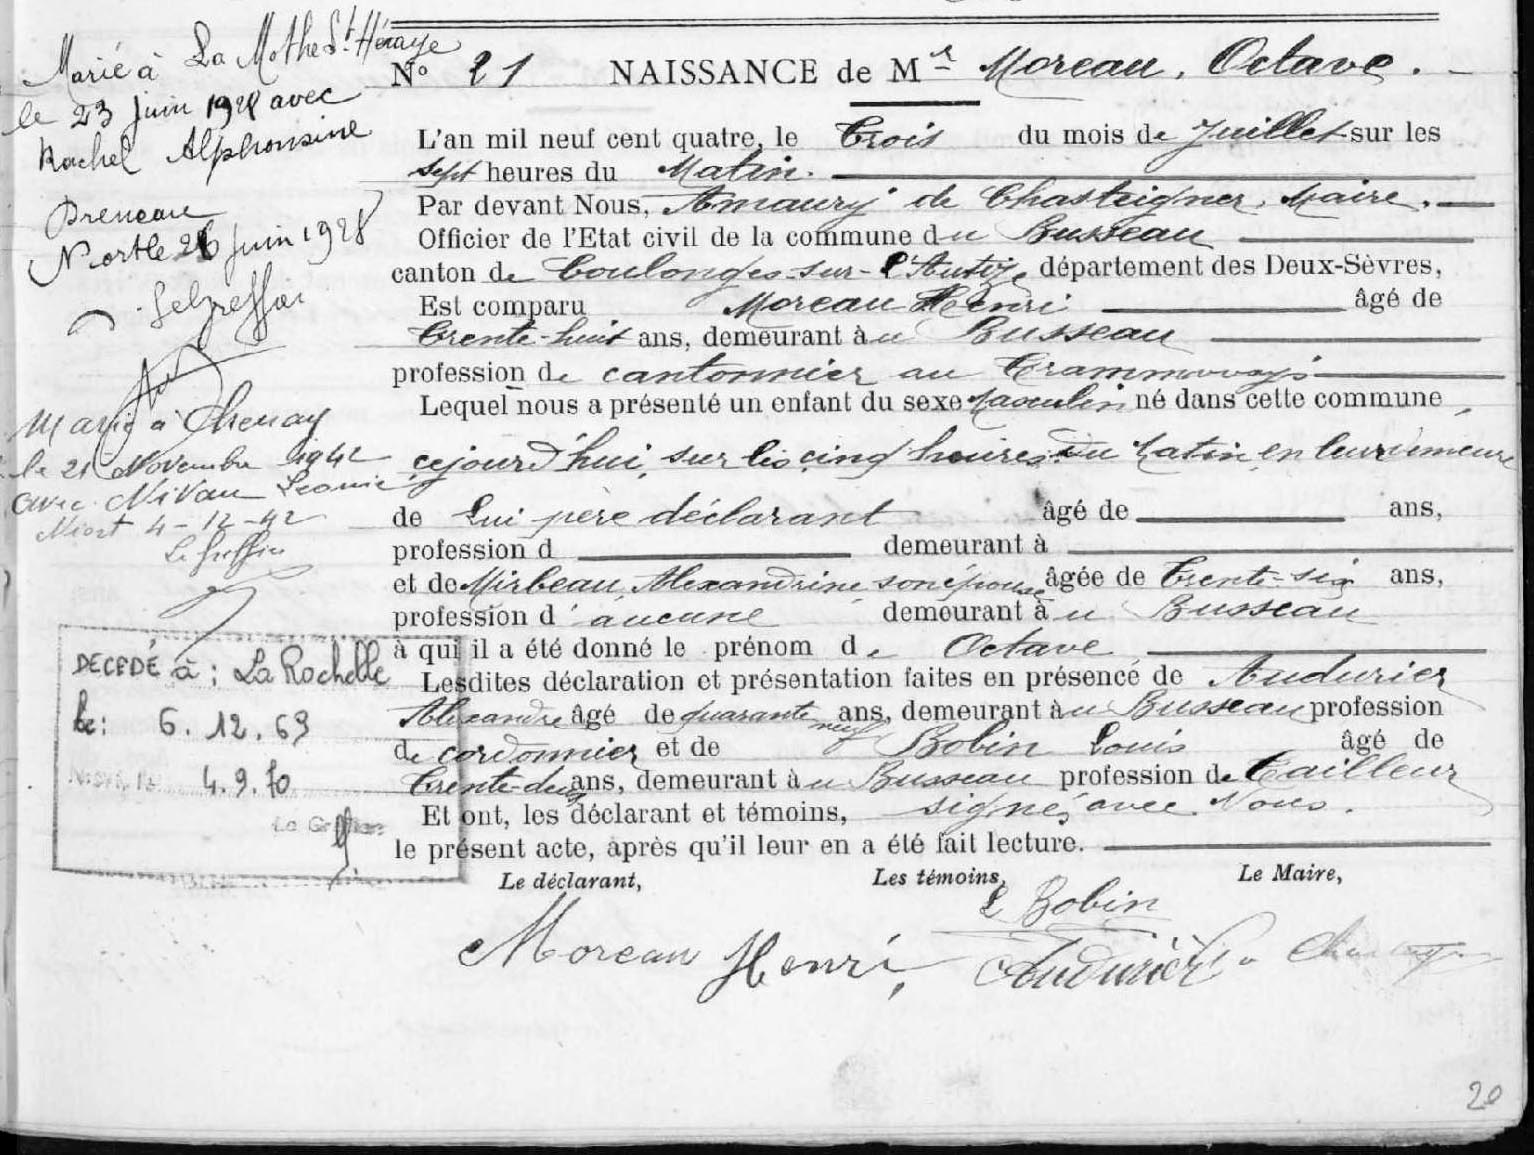 Marié à La Mothe St Héraye
le 23 Juin 1928 avec
Rachel Alphonsine
Niort le 26 Juin 1928
Marié à Thenay
le 21 Novembre 1942
avec Nivau Léonie
Niort 4-12-42
Le Greffier
DECEDÉ à : La Rochelle
le : 6.12.69
4.9.70
Le Greffier
N° 21 NAISSANCE de Mr Moreau, Octave.
L'an mil neuf cent quatre, le Trois du mois de Juillet sur les
sept heures du Matin.
Par devant Nous, Amaury de Chasteigner, Maire.
Officier de l'Etat civil de la commune du Busseau
canton de Coulonges-sur-l'Autize département des Deux-Sèvres,
Est comparu Moreau Henri âgé de
Trente-huit ans, demeurant à u Busseau
profession de cantonnier au Trammways
Lequel nous a présenté un enfant du sexe Masculin né dans cette commune,
cejourd'hui, sur les cinq heures du Matin en leur demeure
de Lui père déclarant âgé de ans,
profession d demeurant à
et de Mirbeau, Alexandrine son épouse âgée de Trente-six ans,
profession d'aucune demeurant à u Busseau
à qui il a été donné le prénom de Octave
Lesdites déclaration et présentation faites en présence de Audurier
Alexandre âgé de quarante neuf ans, demeurant à u Busseau profession
de cordonnier et de Bobin Louis âgé de
Trente-deux ans, demeurant à u Busseau profession de Tailleur
Et ont, les déclarant et témoins, signé, avec Nous.
le présent acte, après qu'il leur en a été fait lecture.
Le déclarant, Les témoins, Le Maire,
L Bobin
Moreau Henri, Audurier
20